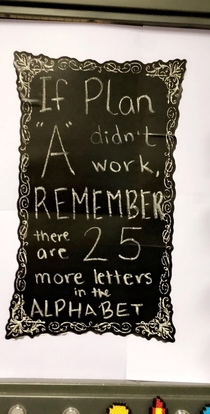 If Plan
"A" didn't
work,
REMEMBER
there
are 25
more letters
in the
ALPHABET